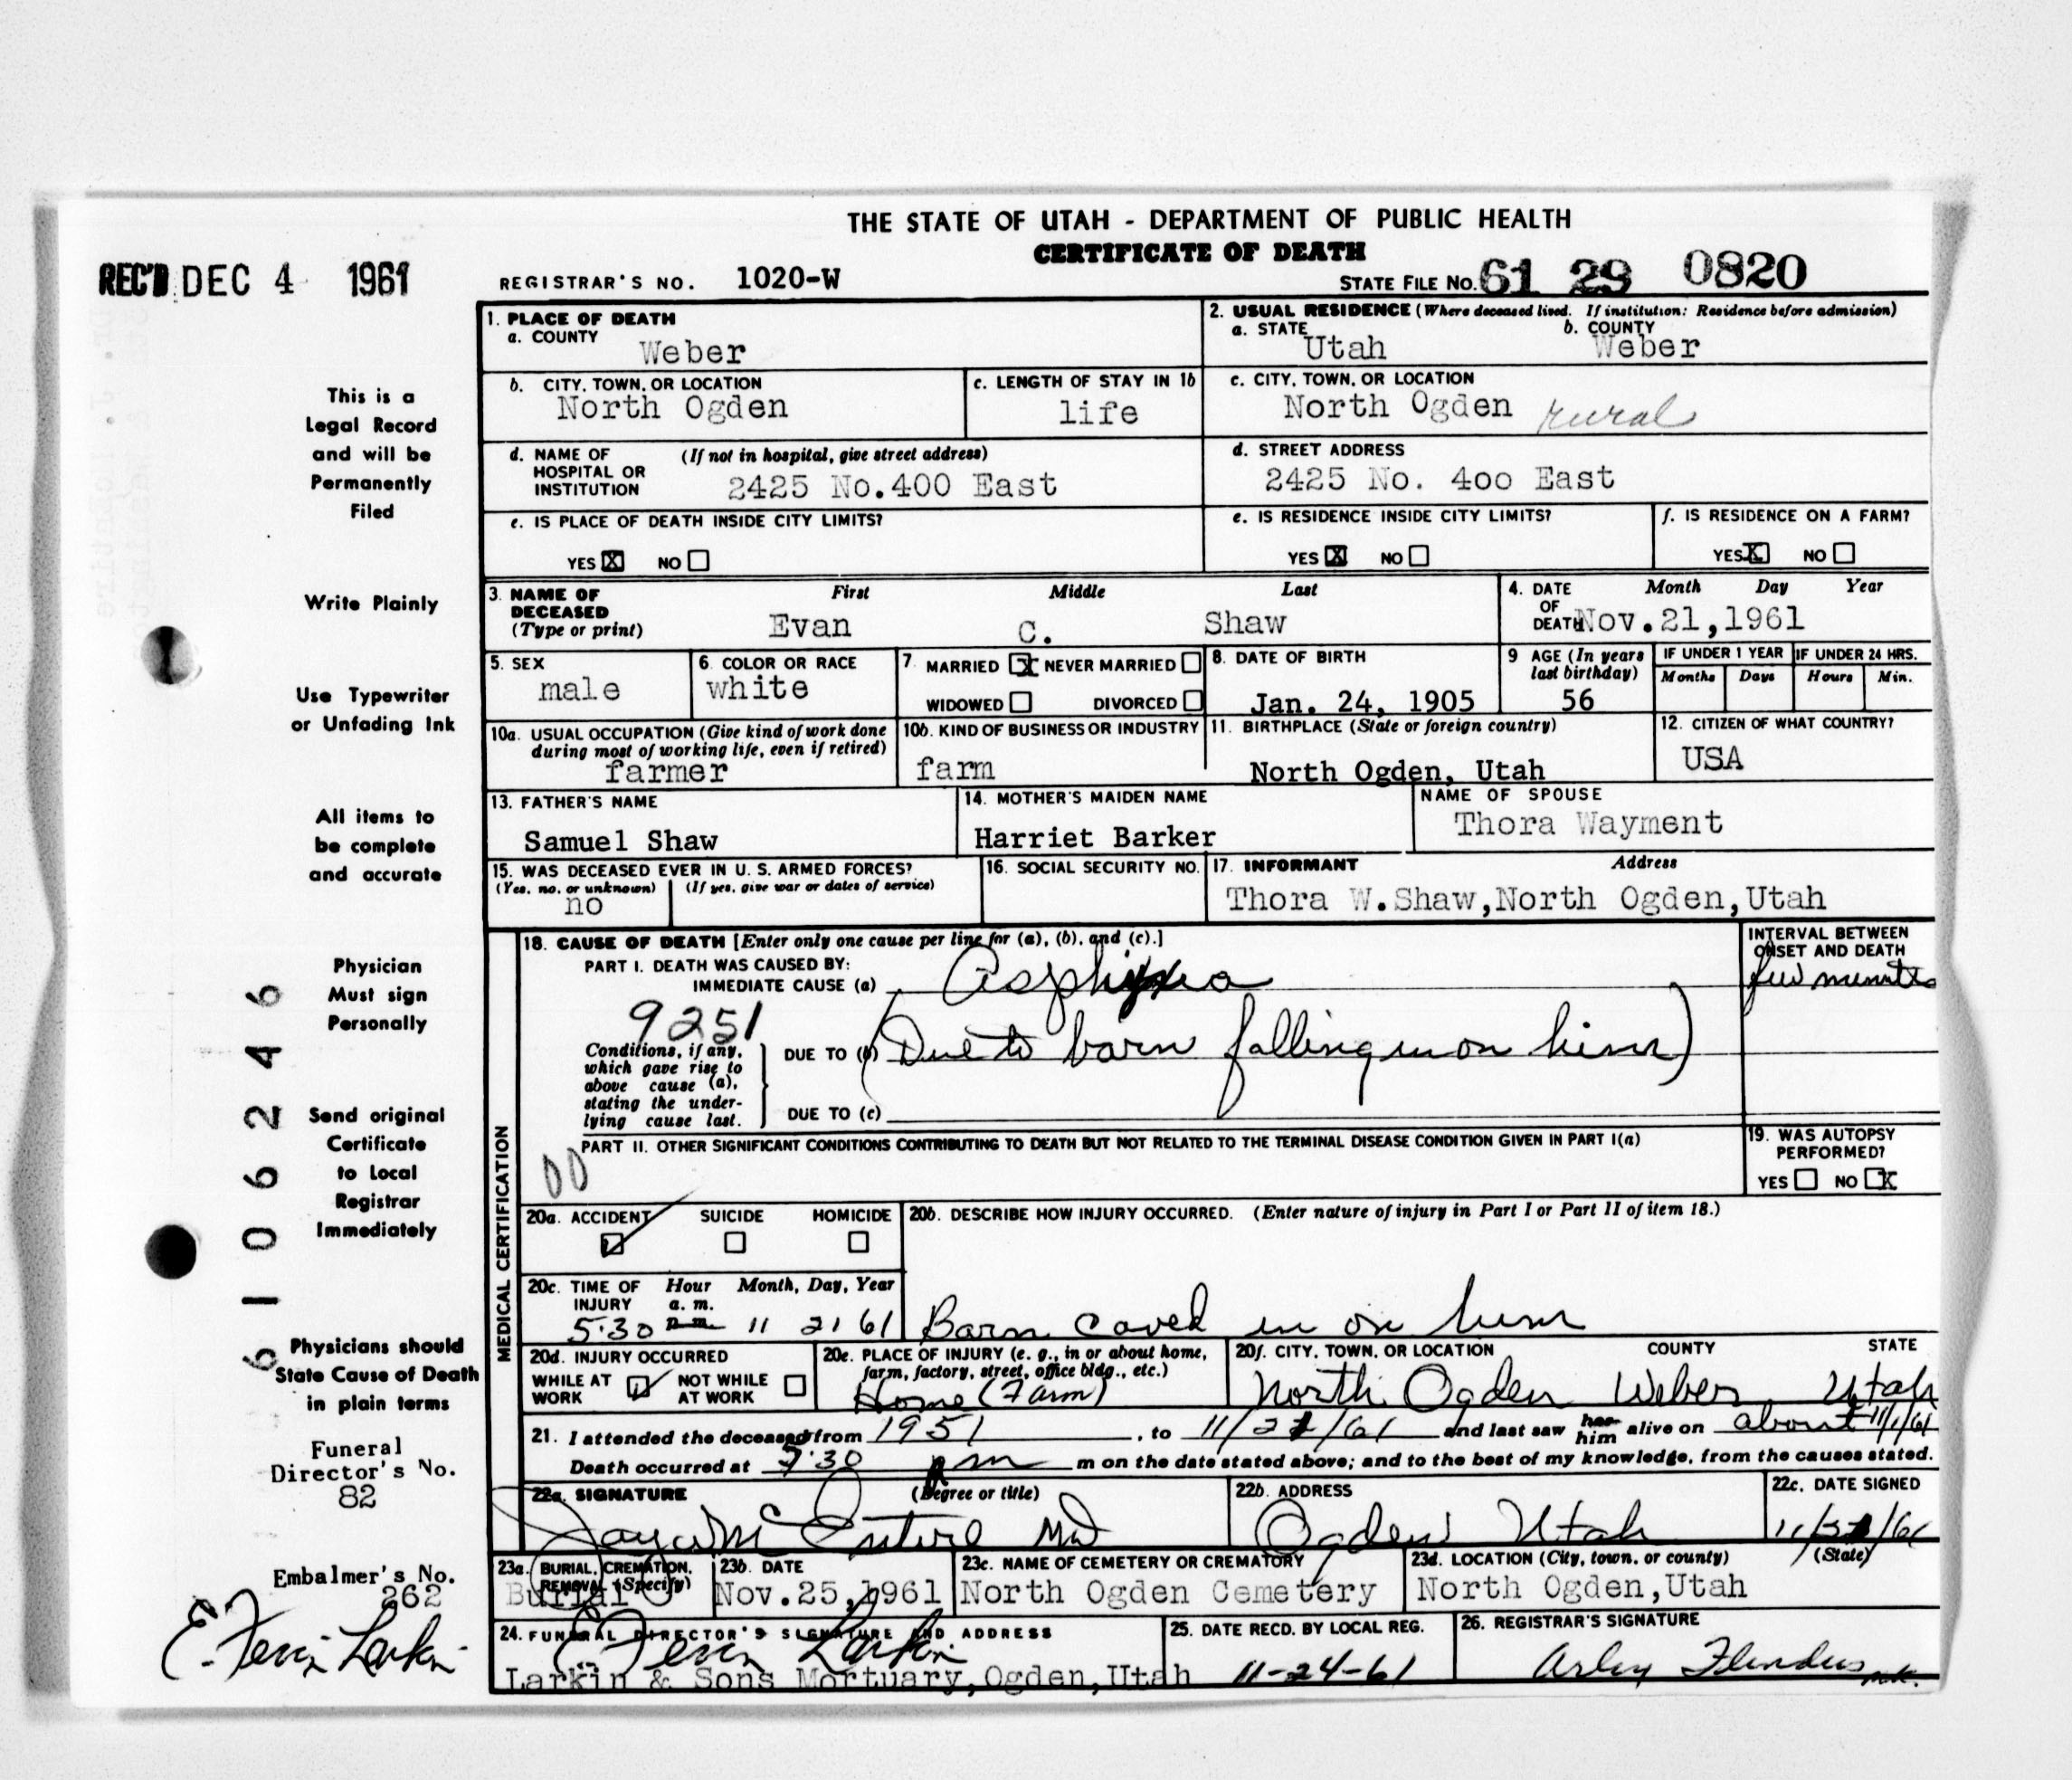 THE STATE OF UTAH - DEPARTMENT OF PUBLIC HEALTH
CERTIFICATE OF DEATH
REC'D DEC 4 1961
REGISTRAR'S NO. 1020-W
STATE FILE NO. 61 29 0820
1. PLACE OF DEATH
a. COUNTY
Weber
2. USUAL RESIDENCE (Where deceased lived. If institution: Residence before admission)
a. STATE b. COUNTY
Utah Weber
b. CITY, TOWN, OR LOCATION
North Ogden
c. LENGTH OF STAY IN 1b
life
c. CITY, TOWN, OR LOCATION
North Ogden rural
d. NAME OF HOSPITAL OR INSTITUTION (If not in hospital, give street address)
2425 No.400 East
d. STREET ADDRESS
2425 No. 4oo East
e. IS PLACE OF DEATH INSIDE CITY LIMITS?
YES X NO
e. IS RESIDENCE INSIDE CITY LIMITS?
YES X NO
f. IS RESIDENCE ON A FARM?
YES X NO
3. NAME OF DECEASED (Type or print)
First Middle Last
Evan C. Shaw
4. DATE OF DEATH Month Day Year
Nov.21,1961
5. SEX
male
6. COLOR OR RACE
white
7. MARRIED X NEVER MARRIED
WIDOWED DIVORCED
8. DATE OF BIRTH
Jan. 24, 1905
9 AGE (In years last birthday)
56
IF UNDER 1 YEAR IF UNDER 24 HRS.
Months Days Hours Min.
10a. USUAL OCCUPATION (Give kind of work done during most of working life, even if retired)
farmer
10b. KIND OF BUSINESS OR INDUSTRY
farm
11. BIRTHPLACE (State or foreign country)
North Ogden, Utah
12. CITIZEN OF WHAT COUNTRY?
USA
13. FATHER'S NAME
Samuel Shaw
14. MOTHER'S MAIDEN NAME
Harriet Barker
NAME OF SPOUSE
Thora Wayment
15. WAS DECEASED EVER IN U. S. ARMED FORCES?
(Yes, no, or unknown) (If yes, give war or dates of service)
no
16. SOCIAL SECURITY NO.
17. INFORMANT Address
Thora W.Shaw,North Ogden,Utah
MEDICAL CERTIFICATION
18. CAUSE OF DEATH [Enter only one cause per line for (a), (b), and (c).]
PART I. DEATH WAS CAUSED BY:
IMMEDIATE CAUSE (a) Asphyxia
INTERVAL BETWEEN ONSET AND DEATH
few minutes
9251
Conditions, if any, which gave rise to above cause (a), stating the underlying cause last.
DUE TO (b) (Due to barn falling in on him)
DUE TO (c)
PART II. OTHER SIGNIFICANT CONDITIONS CONTRIBUTING TO DEATH BUT NOT RELATED TO THE TERMINAL DISEASE CONDITION GIVEN IN PART I(a)
00
19. WAS AUTOPSY PERFORMED?
YES NO X
20a. ACCIDENT SUICIDE HOMICIDE
20b. DESCRIBE HOW INJURY OCCURRED. (Enter nature of injury in Part I or Part II of item 18.)
Barn caved in on him
20c. TIME OF INJURY Hour Month, Day, Year
a. m.
5:30 p.m. 11 21 61
20d. INJURY OCCURRED
WHILE AT WORK NOT WHILE AT WORK
20e. PLACE OF INJURY (e. g., in or about home, farm, factory, street, office bldg., etc.)
Home (Farm)
20f. CITY, TOWN, OR LOCATION COUNTY STATE
North Ogden Weber Utah
21. I attended the deceased from 1951, to 11/21/61 and last saw her him alive on about 11/1/61
Death occurred at 5:30 pm m on the date stated above; and to the best of my knowledge, from the causes stated.
22a. SIGNATURE (Degree or title)
McEntire MD
22b. ADDRESS
Ogden Utah
22c. DATE SIGNED
23a. BURIAL, CREMATION, REMOVAL (Specify)
Burial
23b. DATE
Nov.25,1961
23c. NAME OF CEMETERY OR CREMATORY
North Ogden Cemetery
23d. LOCATION (City, town, or county) (State)
North Ogden,Utah
24. FUNERAL DIRECTOR'S SIGNATURE AND ADDRESS
E. Fervin Larkin
Larkin & Sons Mortuary,Ogden,Utah
25. DATE RECD. BY LOCAL REG.
11-24-61
26. REGISTRAR'S SIGNATURE
Arley Flinders
This is a
Legal Record
and will be
Permanently
Filed
Write Plainly
Use Typewriter
or Unfading Ink
All items to
be complete
and accurate
Physician
Must sign
Personally
Send original
Certificate
to Local
Registrar
Immediately
Physicians should
State Cause of Death
in plain terms
6106246
Funeral
Director's No.
82
Embalmer's No.
262
E. Fervin Larkin